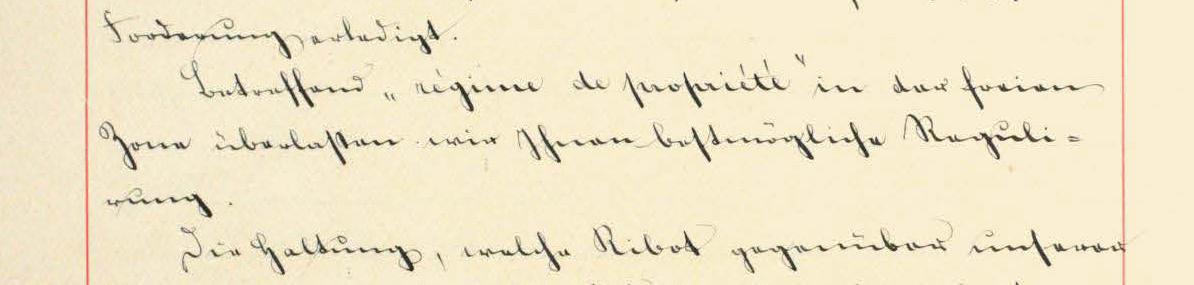 Forderung erledigt.
Betreffend „régime de propriété“ in der freien
Zone überlassen wir Ihnen bestmögliche Reguli-
rung.
Die Haltung, welche Ribot gegenüber unserer